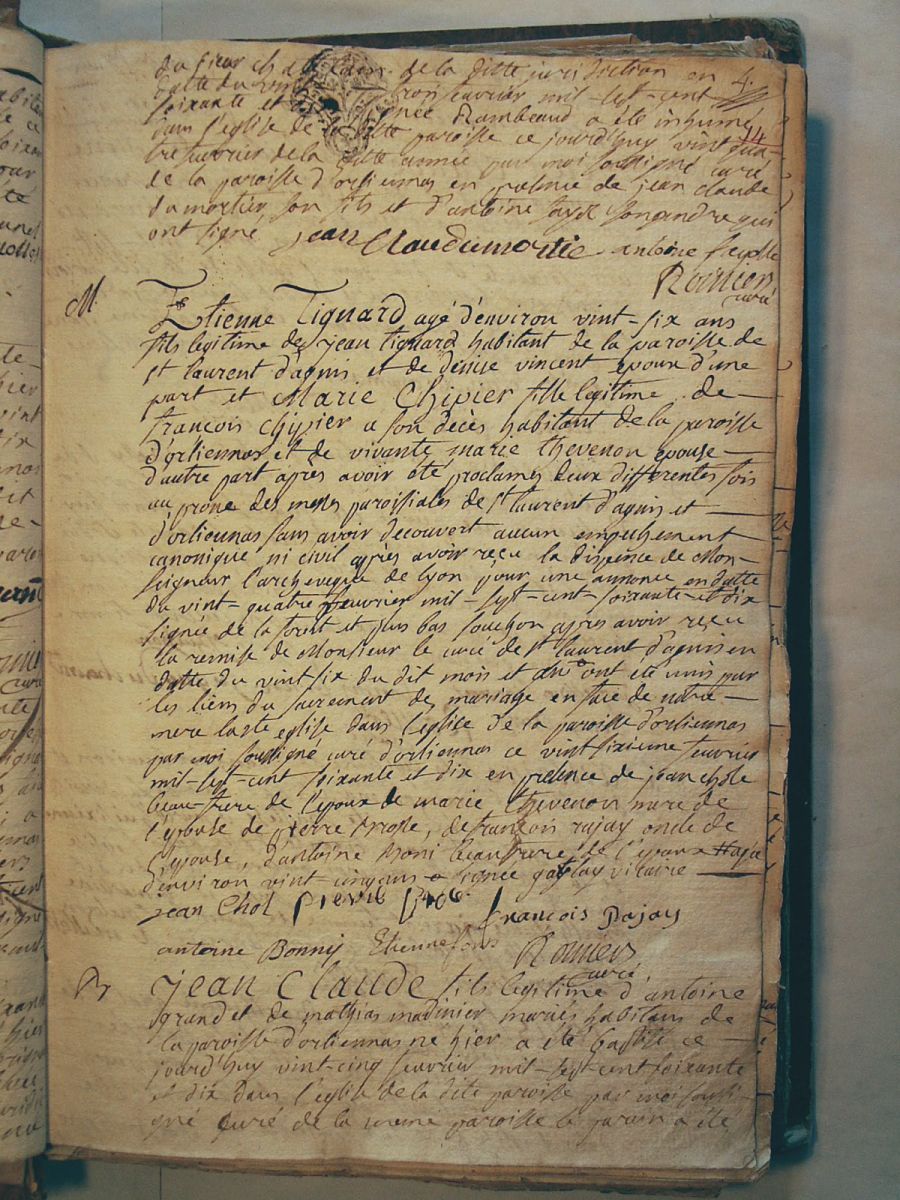 du sieur de la ditte jurisdiction en 4.
datte du vint fevrier mil-sept-cent
soixante et Rambeaud a été inhumé 14
dans l'église de la ditte paroisse ce jourd'huy vint qua
tre feuvrier de la ditte année par moi soussigné curé
de la paroisse d'orliennas en présence de jean claude
dumortier son fils et d'antoine fayolle son gendre qui
ont signé jean Claudumortie antoine feyolle
Romiers
curé
M.
Etienne Tignard agé d'environ vint-six ans
fils légitime de jean tignard habitant de la paroisse de
st laurent d'agnis et de denise vincent époux d'une
part et Marie Chipier fille légitime de
francois chipier a son décès habitant de la paroisse
d'orliennas et de vivante marie thevenon épouse
d'autre part après avoir été proclamés deux differentes fois
au prone des messes paroissiales de st laurent d'agnis et
d'orliennas sans avoir decouvert aucun empechement
canonique ni civil après avoir reçu la dispence de Mon
seigneur l'archeveque de lyon pour une annonce en datte
du vint-quatre feuvrier mil-sept-cent-soixante-et dix
signée de la forest et plus bas souchon après avoir reçu
la remise de Monsieur le curé de st laurent d'agnis en
datte du vint six du dit mois et an ont été unis par
les liens du sacrement de mariage en face de notre
mere la ste eglise dans l'eglise de la paroisse d'orliennas
par moi soussigné curé d'orliennas ce vint sixieme feuvrier
mil-sept-cent soixante et dix en présence de jean chole
beau-frere de l'epoux de marie thevenon mere de
l'epouse de pierre, de françois pajay oncle de
l'epouse, d'antoine boni beau frere de l'epoux
d'environ vint cinq ans signée vicaire
jean Chol pierre francois Pajay
antoine Bonny Etienne Romiers
curé
B
jean Claude fils legitime d'antoine
grand et de mathias madinier mariés habitans de
la paroisse d'orliennas né hier a été batisé ce
jourd'huy vint-cinq feuvrier mil-sept-cent soixante
et dix dans l'eglise de la dite paroisse par moi soussi
gné curé de la meme paroisse le parain a été